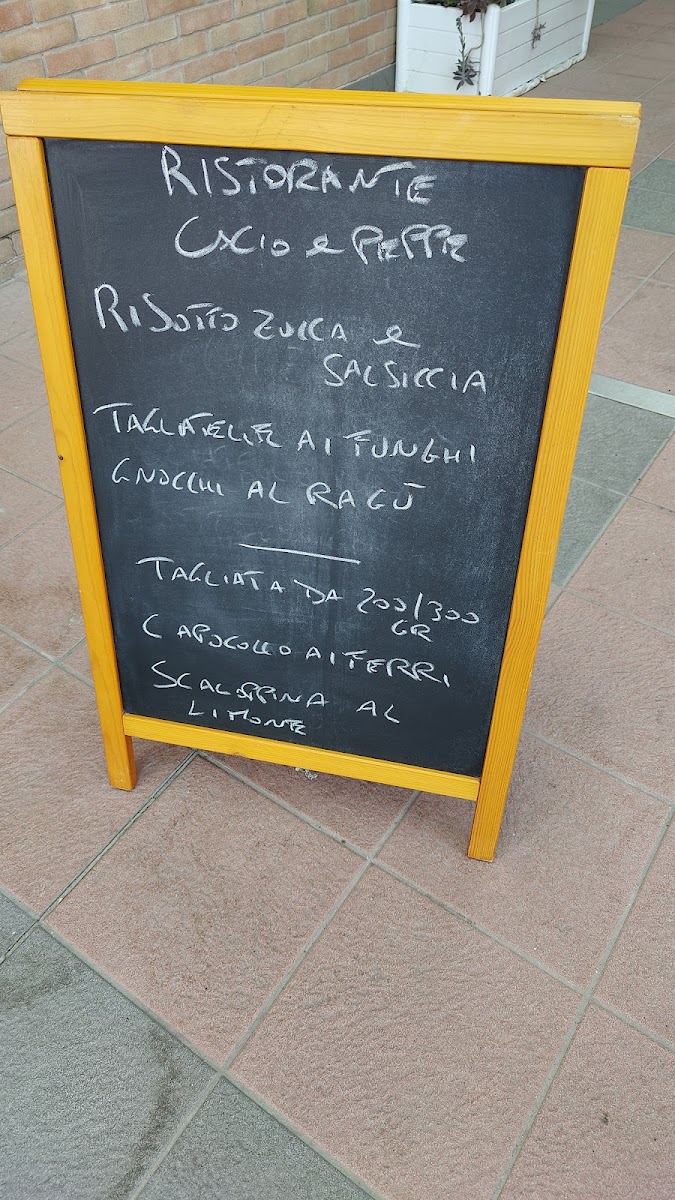 RISTORANTE
CACIO e PEPPE
RISOTTO ZUCCA e
SALSICCIA
TAGLIATELLE AI FUNGHI
GNOCCHI AL RAGÙ
TAGLIATA DA 200/300
GR
CAPOCOLLO AI FERRI
SCALOPPINA AL
LIMONE